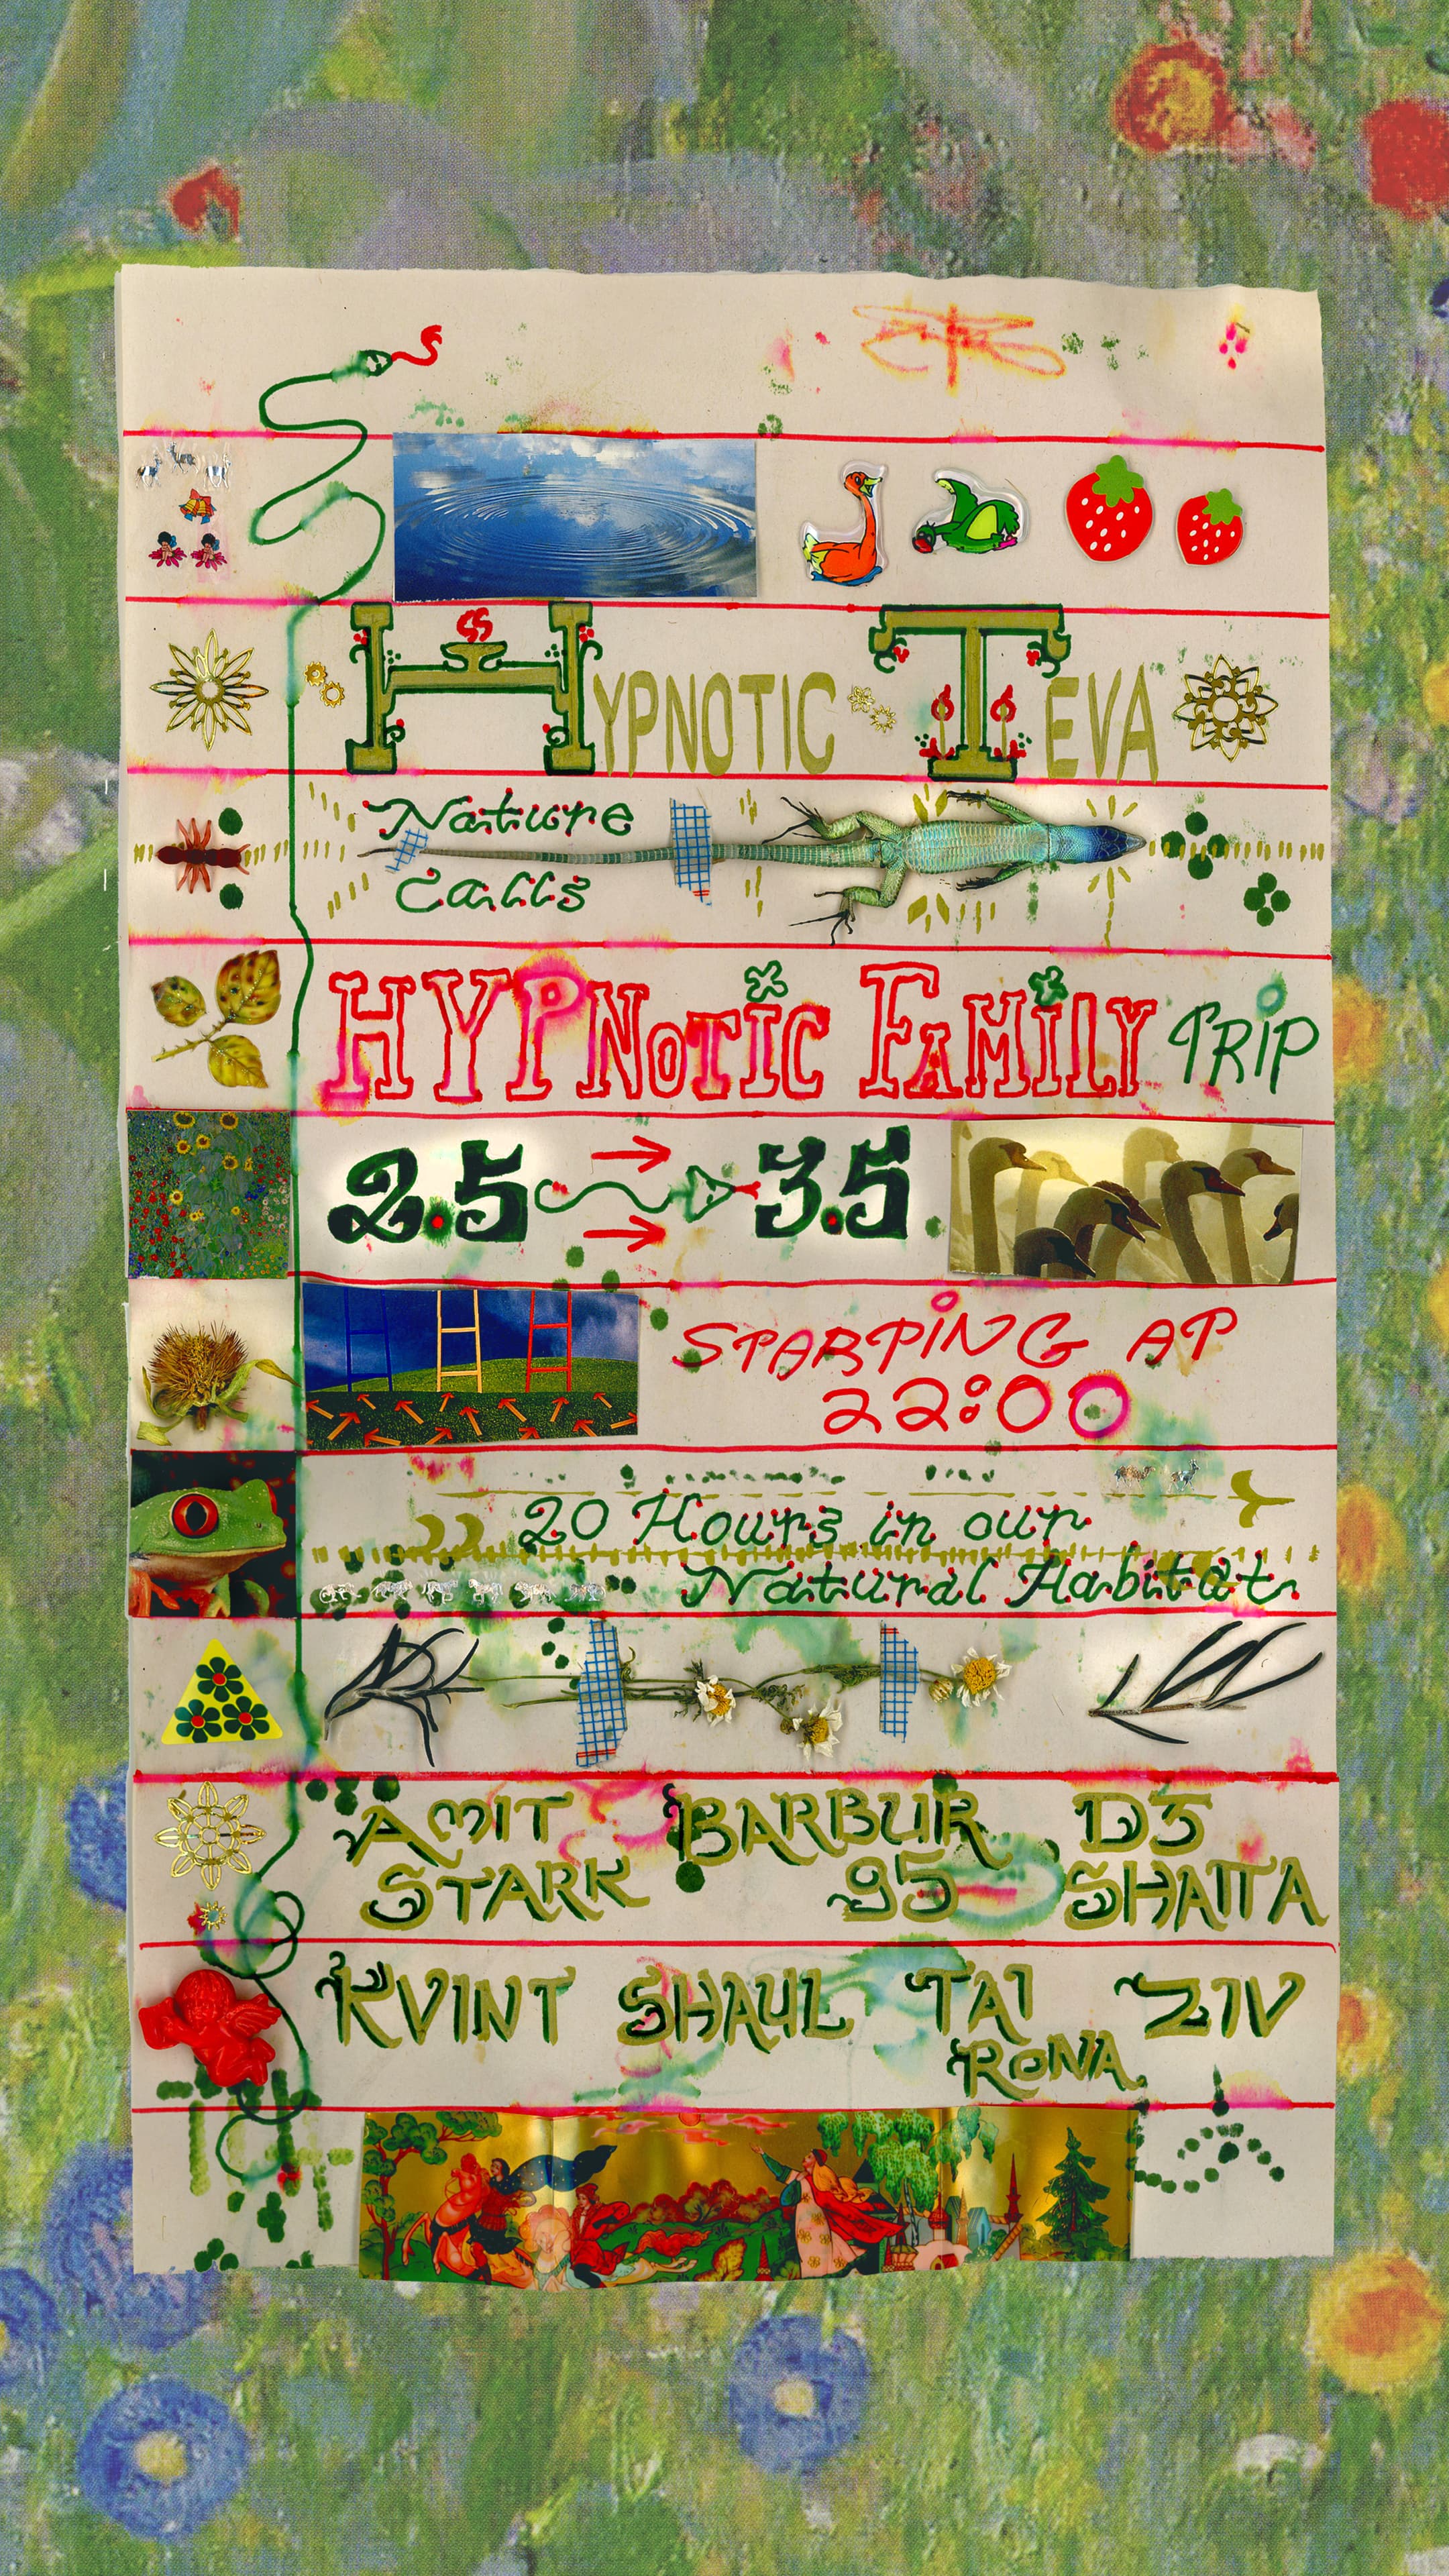 HYPNOTIC TEVA
Nature
Calls
HYPNOTIC FAMILY TRIP
2.5 3.5
STARTING AT
22:00
20 Hours in our
Natural Habitat
AMIT BARBUR DJ
STARK 95 SHAITA
KVINT SHAUL TAI ZIV
RONA